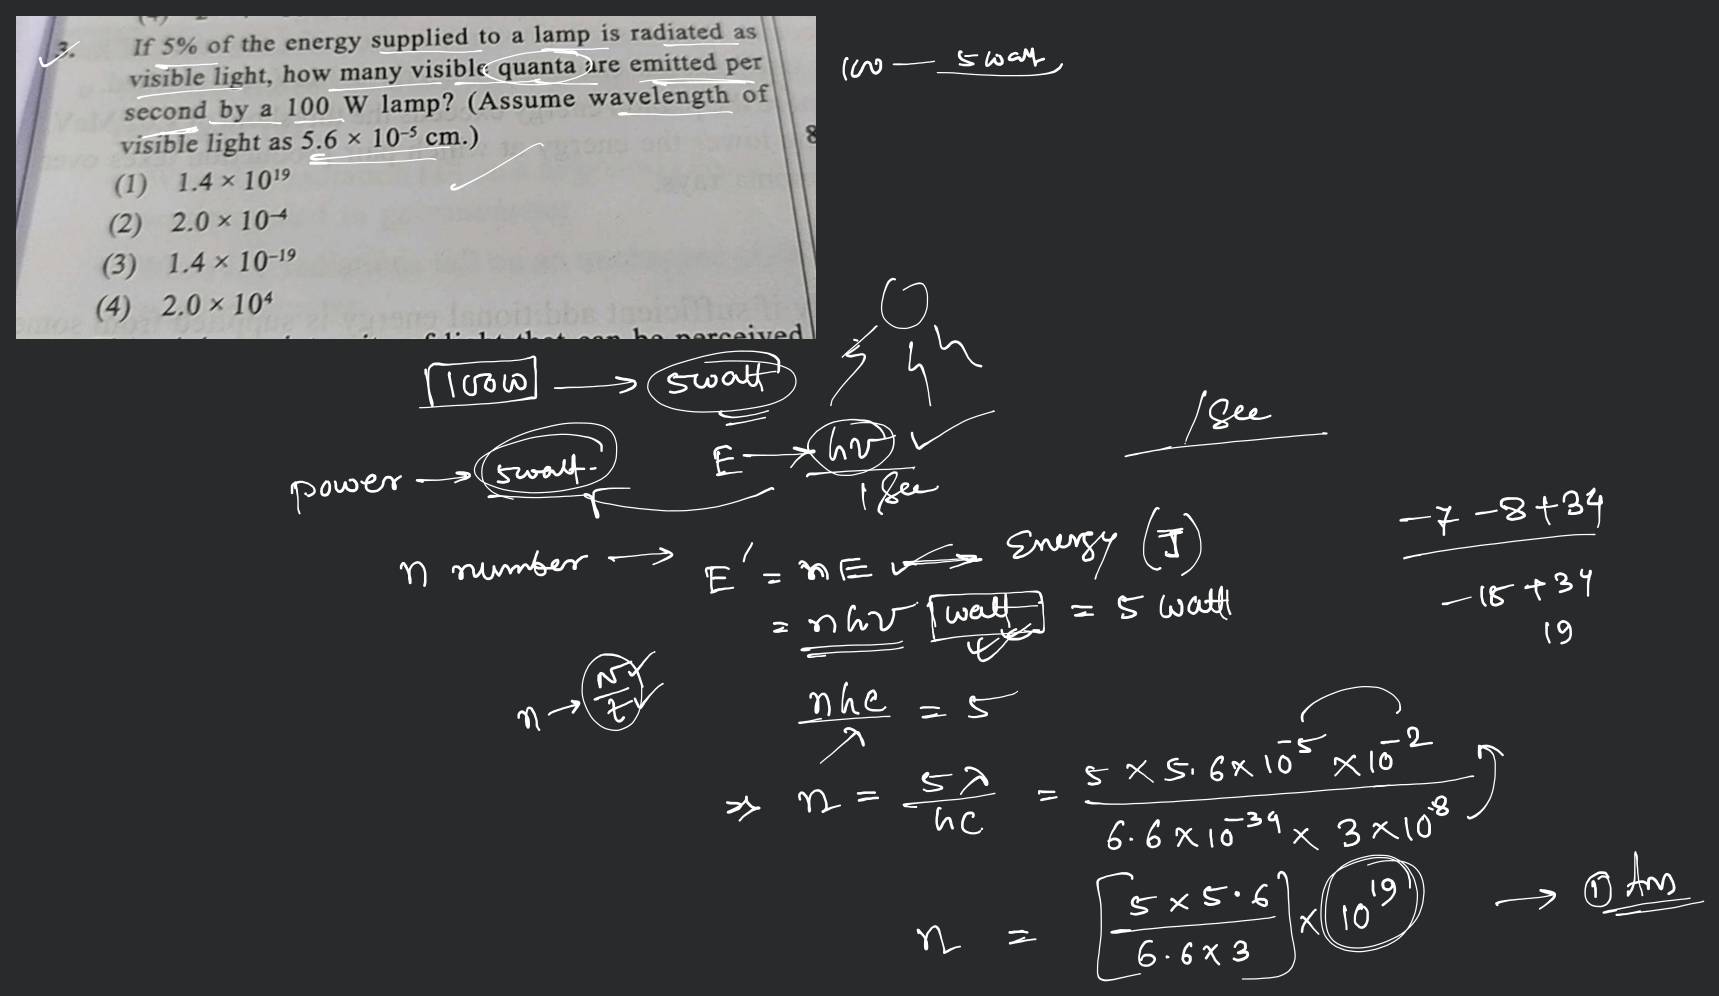 3. If 5% of the energy supplied to a lamp is radiated as
visible light, how many visible quanta are emitted per
second by a 100 W lamp? (Assume wavelength of
visible light as 5.6 × 10⁻⁵ cm.)
(1) 1.4 × 10¹⁹
(2) 2.0 × 10⁻⁴
(3) 1.4 × 10⁻¹⁹
(4) 2.0 × 10⁴
8
100 — 5 watt
100W → 5watt
/See
E → hν
1 See
power → 5watt.
-7 -8+34
n number → E' = nE ← Energy (J)
-15 +34
= nhν watt = 5 watt
19
n → N/t
nhc = 5
⇒ n = 5λ/hc = 5 × 5.6 × 10⁻⁵ × 10⁻² / 6.6 × 10⁻³⁴ × 3 × 10⁸
n = [5 × 5.6 / 6.6 × 3] × 10¹⁹ → ① Ans